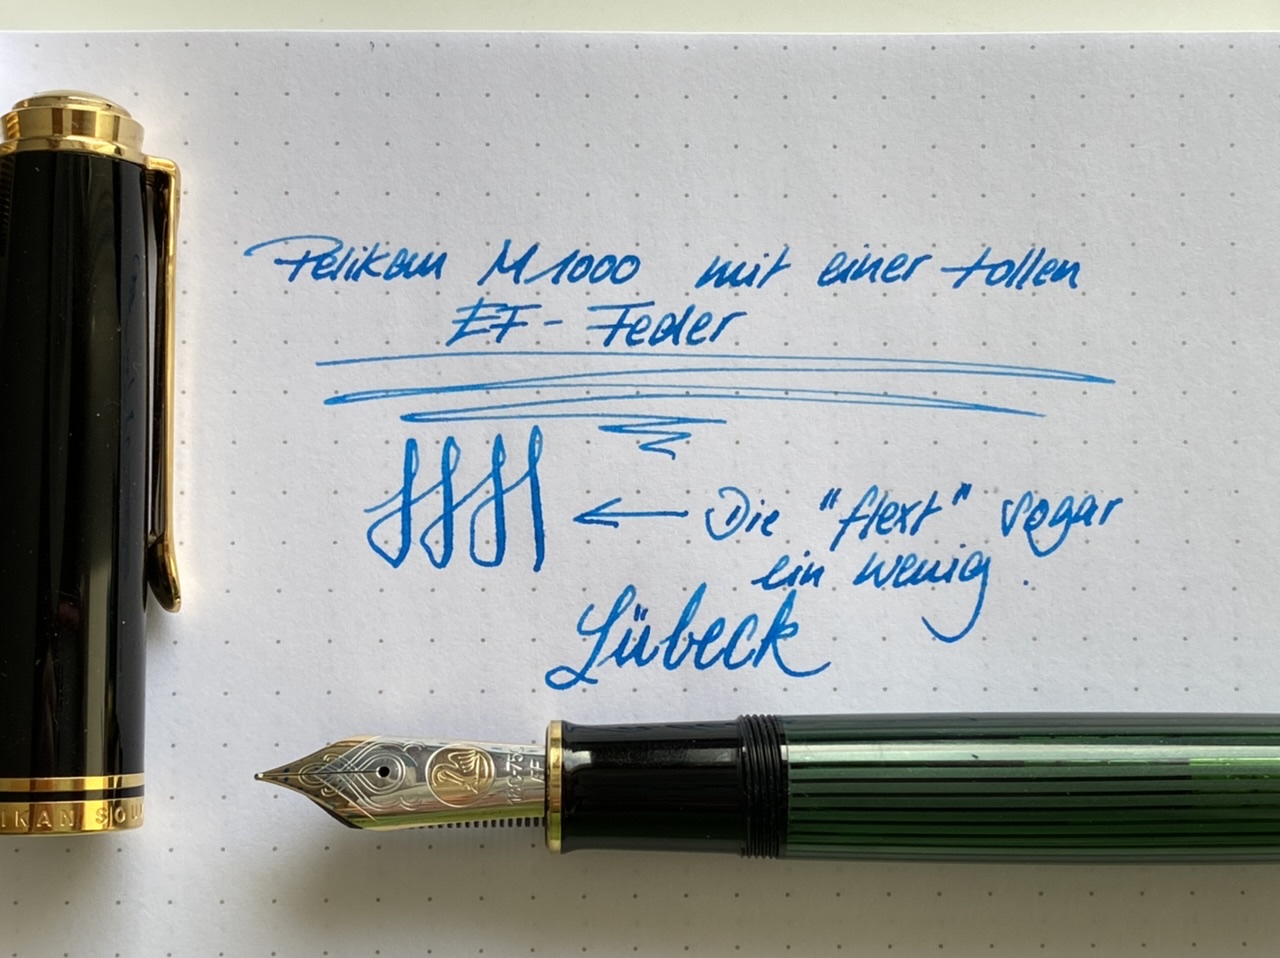 Pelikan M1000 mit einer tollen
EF- Feder
Die "flext" sogar
ein wenig.
Lübeck
EF
IKAN SOU